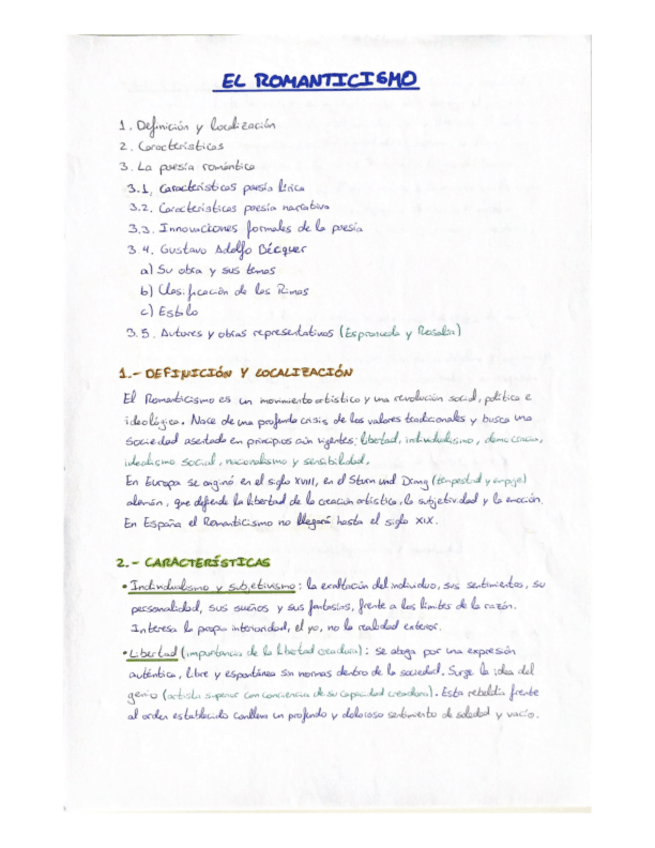 EL ROMANTICISMO
1. Definición y localización
2. Características
3. La poesía romántica
3.1. Características poesía lírica
3.2. Características poesía narrativa
3.3. Innovaciones formales de la poesía
3.4. Gustavo Adolfo Bécquer
a) Su obra y sus temas
b) Clasificación de las Rimas
c) Estilo
3.5. Autores y obras representativos (Espronceda y Rosalía)
1.- DEFINICIÓN Y LOCALIZACIÓN
El Romanticismo es un movimiento artístico y una revolución social, política e
ideológica. Nace de una profunda crisis de los valores tradicionales y busca una
sociedad asentada en principios aún vigentes: libertad, individualismo, democracia,
idealismo social, nacionalismo y sensibilidad.
En Europa se originó en el siglo XVIII, en el Sturm und Drang (tempestad y empuje)
alemán, que defiende la libertad de la creación artística, la subjetividad y la emoción.
En España el Romanticismo no llegará hasta el siglo XIX.
2.- CARACTERÍSTICAS
• Individualismo y subjetivismo: la exaltación del individuo, sus sentimientos, su
personalidad, sus sueños y sus fantasías, frente a los límites de la razón.
Interesa la propia interioridad, el yo, no la realidad exterior.
• Libertad (importancia de la libertad creadora): se aboga por una expresión
auténtica, libre y espontánea sin normas dentro de la sociedad. Surge la idea del
genio (artista superior con conciencia de su capacidad creadora). Esta rebeldía frente
al orden establecido conlleva un profundo y doloroso sentimiento de soledad y vacío.